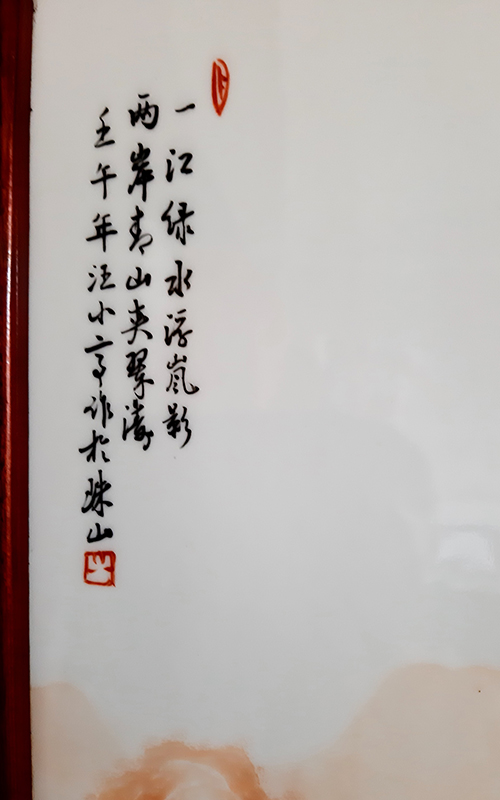 一江绿水浮岚影
两岸青山夹翠涛
壬午年汪小亭作於珠山